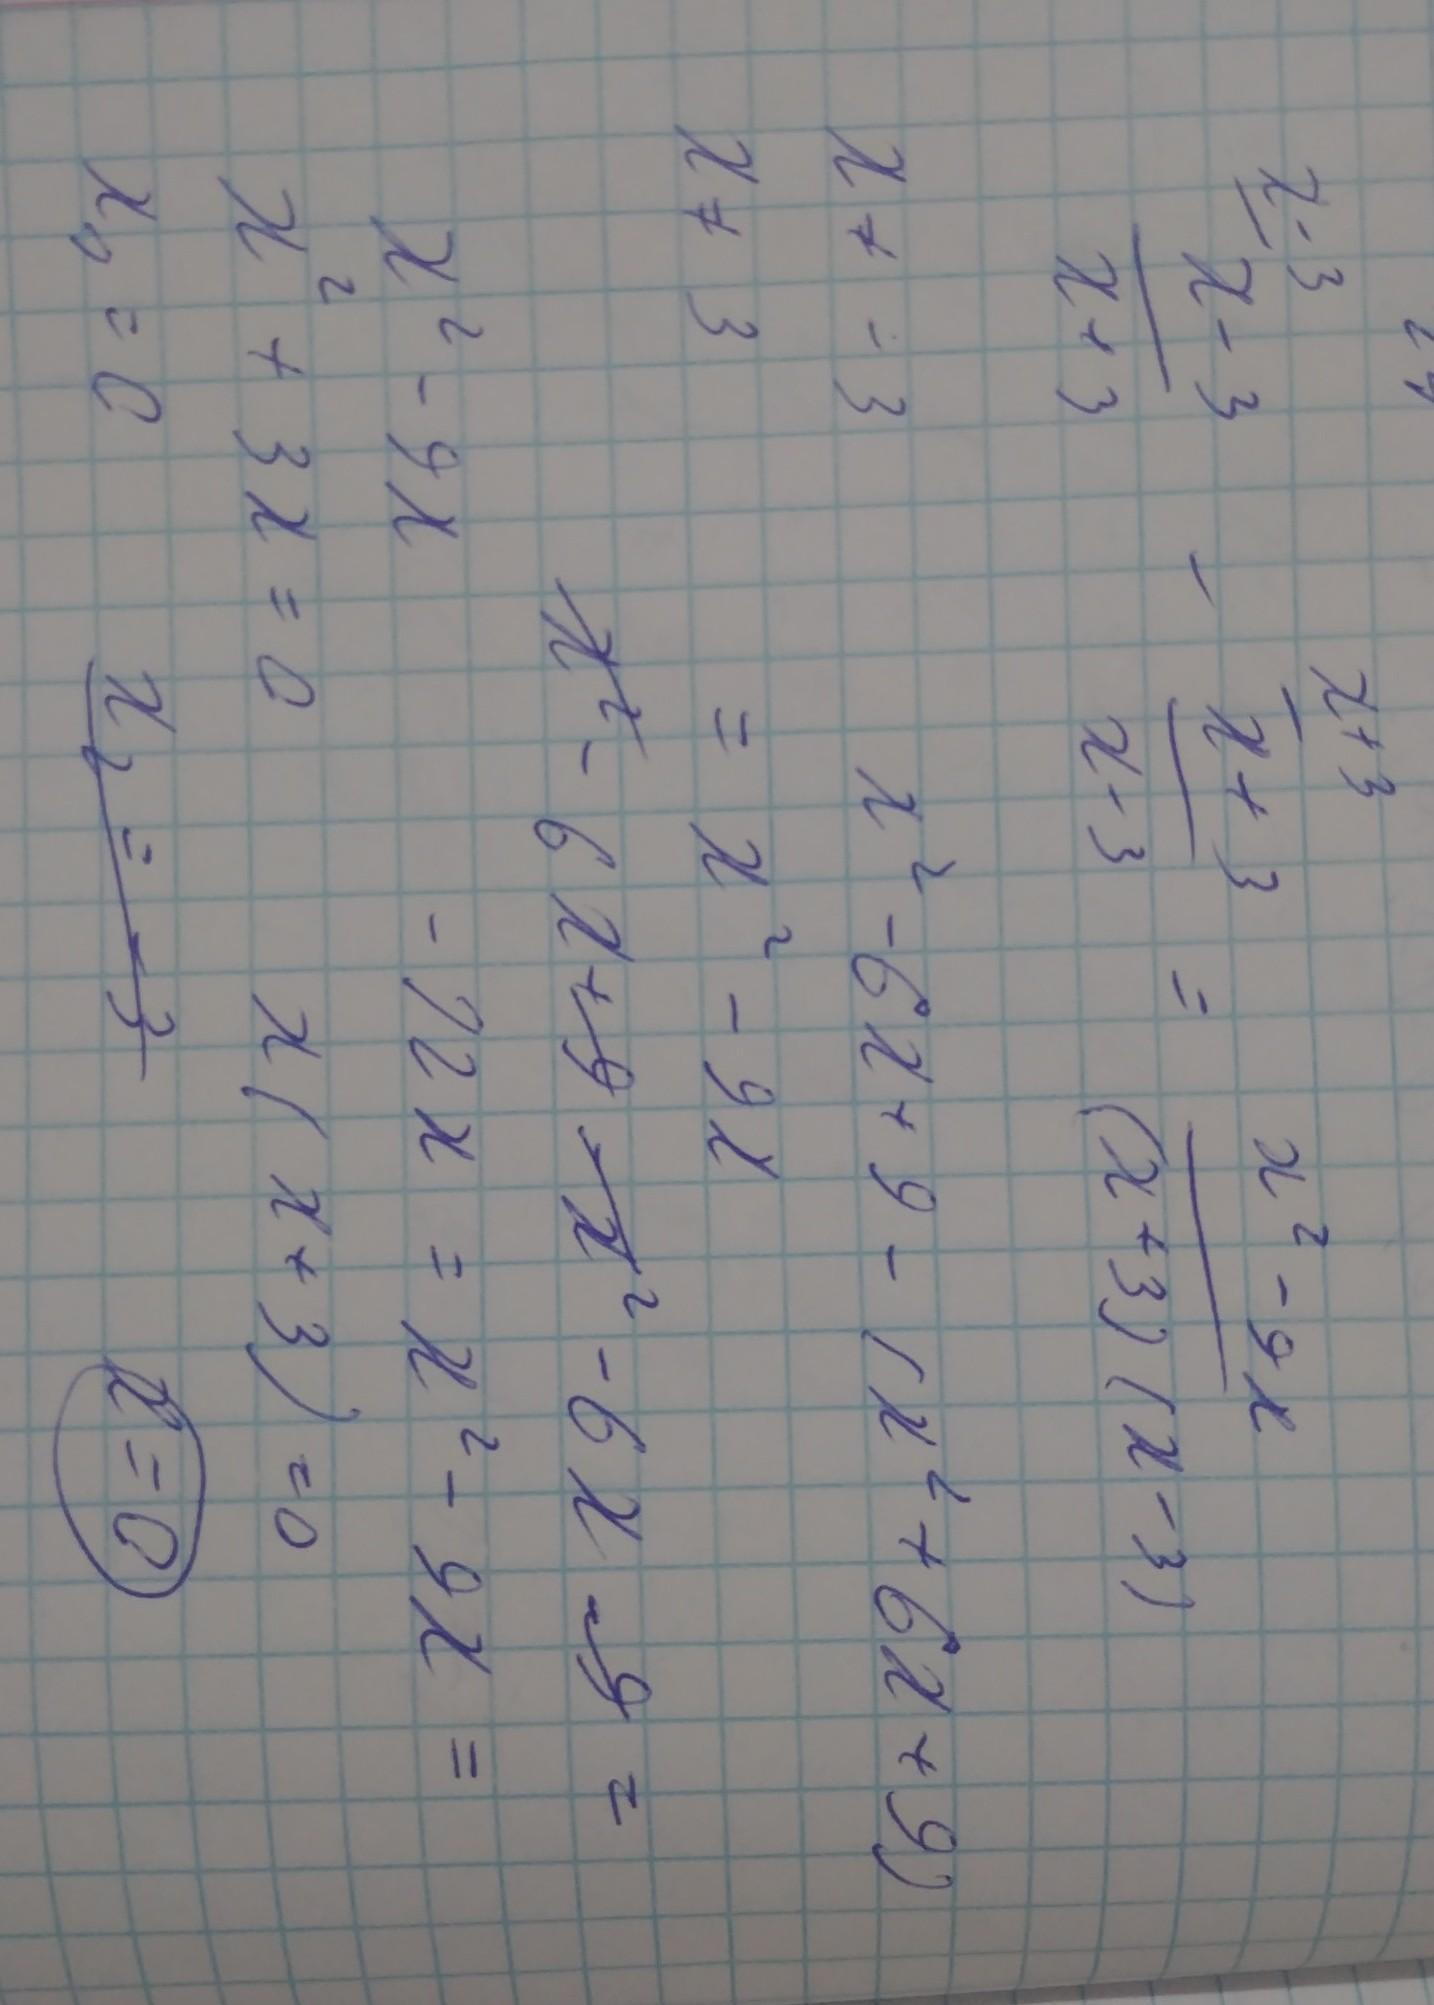 x-3 x+3
x-3 / x+3 - x+3 / x-3 = x² - 9x / (x+3)(x-3)
x ≠ -3 x² - 6x + 9 - (x² + 6x + 9)
x ≠ 3 = x² - 9x
x² - 6x + 9 - x² - 6x - 9 =
x² - 9x - 12x = x² - 9x =
x² + 3x = 0 x(x+3) = 0
x₀ = 0 x₂ = -3 x = 0